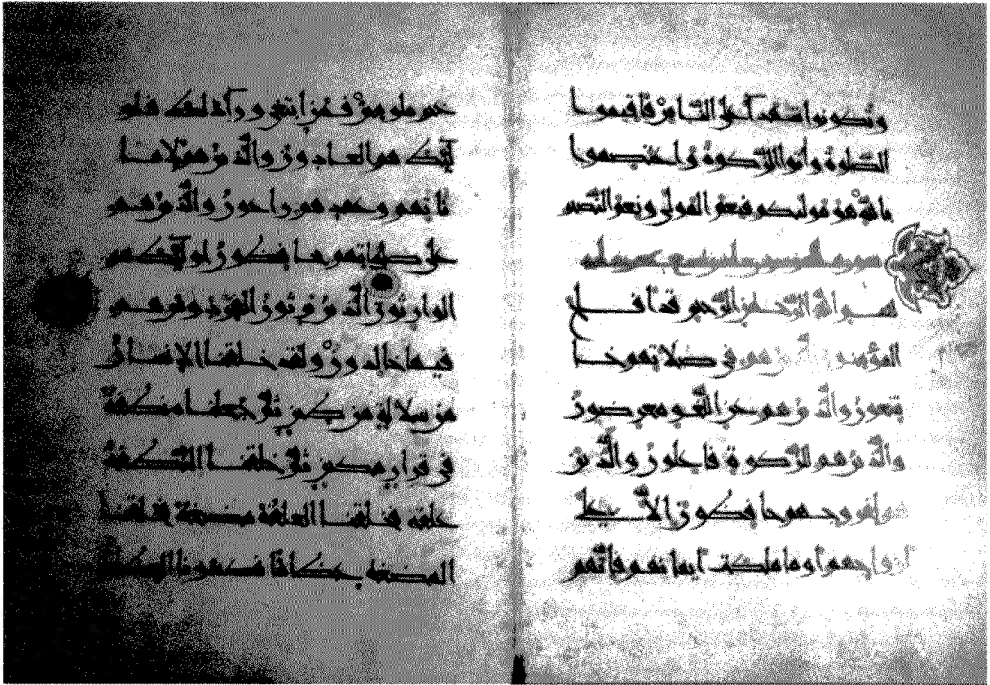 وتكونوا شهدآء على الناس فأقيموا
الصلوة وأتوا الزكوة واعتصموا
بالله هو موليكم فنعم المولى ونعم النصير
بسم الله الرحمن الرحيم قد أفلح
المؤمنون الذين هم في صلاتهم خا
شعون والذين هم عن اللغو معرضون
والذين هم للزكوة فاعلون والذين
هم لفروجهم حافظون إلا على
أزواجهم أو ما ملكت أيمانهم فإنهم
غير ملومين فمن ابتغى ورآء ذلك فأو
لئك هم العادون والذين هم لأمانا
تهم وعهدهم راعون والذين هم
على صلواتهم يحافظون أولئك هم
الوارثون الذين يرثون الفردوس هم
فيها خالدون ولقد خلقنا الإنسان
من سلالة من طين ثم جعلناه نطفة
في قرار مكين ثم خلقنا النطفة
علقة فخلقنا العلقة مضغة فخلقنا
المضغة عظاما فكسونا العظام